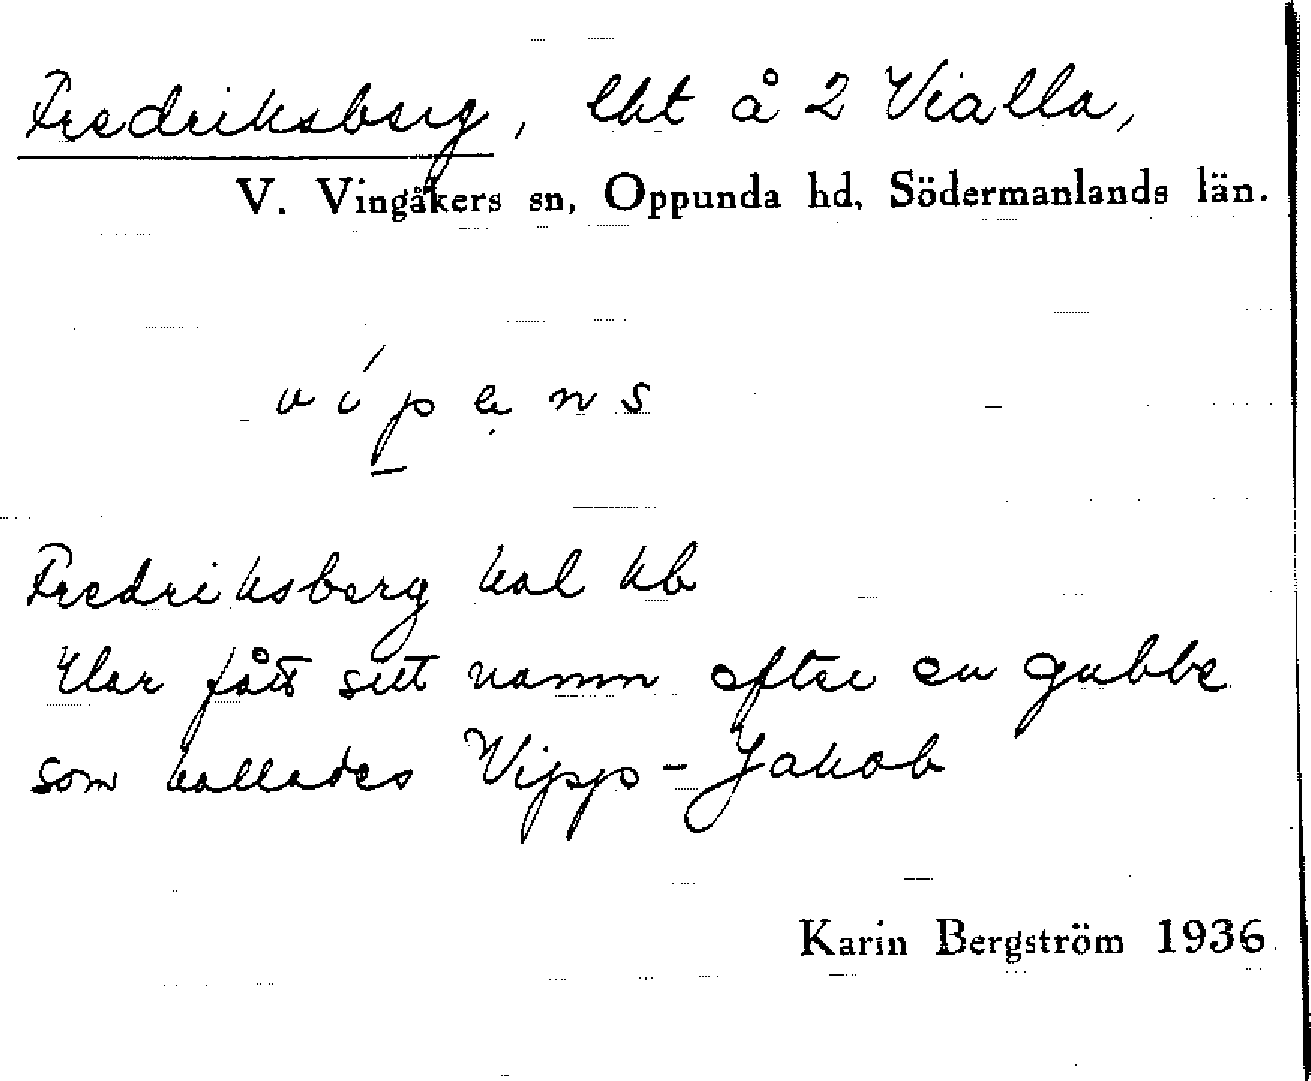 Fredriksberg, lht å 2 Vialla,
V. Vingåkers sn, Oppunda hd, Södermanlands län.
vípạns
Fredriksberg kal kb
Har fått sitt namn efter en gubbe
som kallades Vipp-Jakob
Karin Bergström 1936